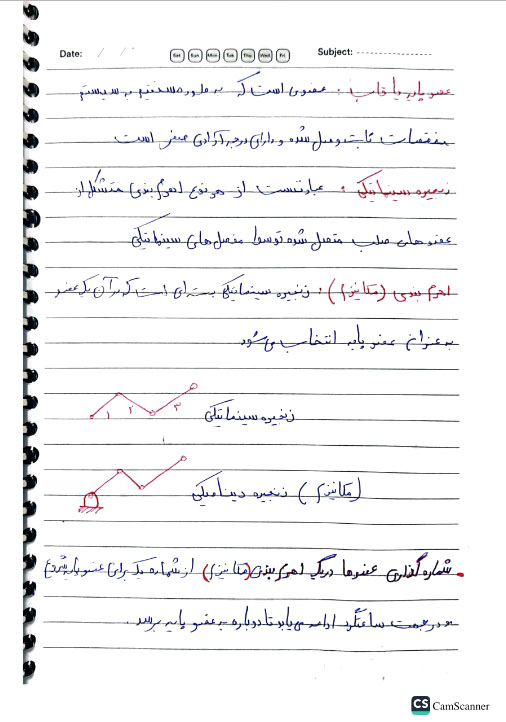 Date: / /
Sat Sun Mon Tue Thu Wed Fri
Subject:
عضو پایه یا قاب: عضوی است که به طور مستقیم به سیستم
مختصات ثابت وصل شده و دارای درجه آزادی صفر است
زنجیره سینماتیکی: عبارتست از هر نوع اهرم بندی متشکل از
عضوهای صلب متصل شده توسط مفصل های سینماتیکی
اهرم بندی (مکانیزم): زنجیره سینماتیکی بسته ای است که در آن یک عضو
به عنوان عضو پایه انتخاب می شود
۱ ۲ ۳ زنجیره سینماتیکی
(مکانیزم) زنجیره دینامیکی
شماره گذاری عضوها در یک اهرم بندی (مکانیزم) از شماره یک برای عضو پایه شروع
و در جهت ساعتگرد ادامه می یابد تا دوباره به عضو پایه برسد.
CS CamScanner